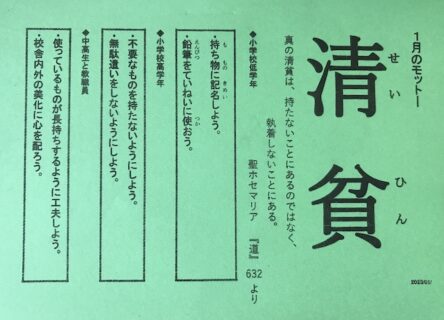 1月のモットー
清貧
せい ひん
真の清貧は、持たないことにあるのではなく、
執着しないことにある。
聖ホセマリア 『道』 632 より
◆小学校低学年
・持ち物に記名しよう。
も もの きめい
・鉛筆をていねいに使おう。
えんぴつ つか
◆小学校高学年
・不要なものを持たないようにしよう。
・無駄遣いをしないようにしよう。
◆中高生と教職員
・使っているものが長持ちするように工夫しよう。
・校舎内外の美化に心を配ろう。